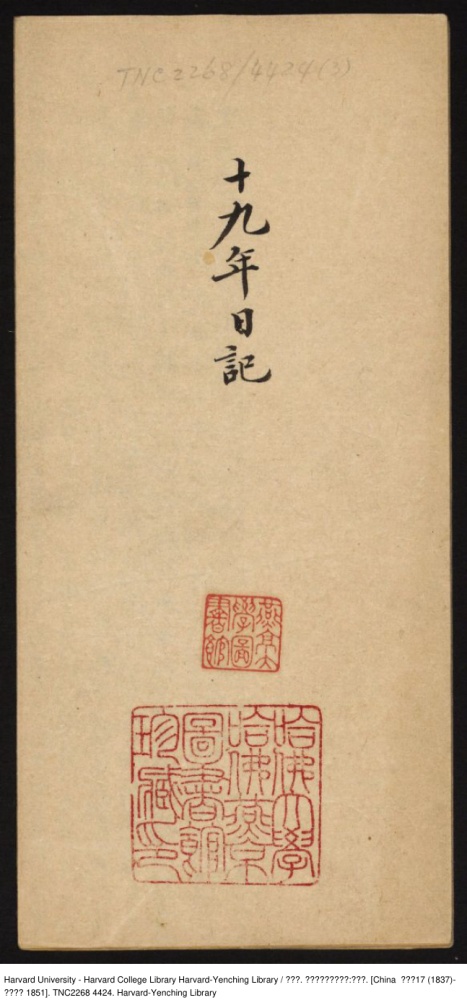 TNC2268/4424(3)
十九年日記
燕京大
學圖
書館
哈佛大學
哈佛燕京
圖書館
珍藏印
Harvard University - Harvard College Library Harvard-Yenching Library / ???. ?????????:???. [China ???17 (1837)-
???? 1851]. TNC2268 4424. Harvard-Yenching Library